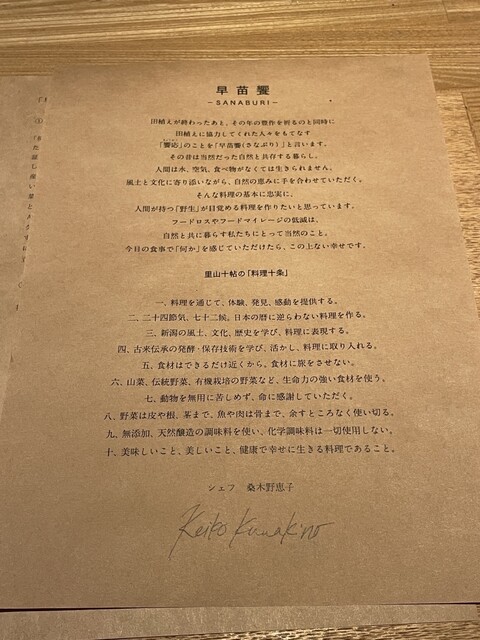 早苗饗
−SANABURI−
田植えが終わったあと、その年の豊作を祈るのと同時に
田植えに協力してくれた人々をもてなす
「饗応」のことを「早苗饗(さなぶり)」と言います。
その昔は当然だった自然と共存する暮らし。
人間は水、空気、食べ物がなくては生きられません。
風土と文化に寄り添いながら、自然の恵みに手を合わせていただく。
そんな料理の基本に忠実に、
人間が持つ「野生」が目覚める料理を作りたいと思っています。
フードロスやフードマイレージの低減は、
自然と共に暮らす私たちにとって当然のこと。
今日の食事で「何か」を感じていただけたら、この上ない幸せです。
里山十帖の「料理十条」
一、料理を通じて、体験、発見、感動を提供する。
二、二十四節気、七十二候。日本の暦に逆らわない料理を作る。
三、新潟の風土、文化、歴史を学び、料理に表現する。
四、古来伝承の発酵・保存技術を学び、活かし、料理に取り入れる。
五、食材はできるだけ近くから、食材に旅をさせない。
六、山菜、伝統野菜、有機栽培の野菜など、生命力の強い食材を使う。
七、動物を無用に苦しめず、命に感謝していただく。
八、野菜は皮や根、茎まで。魚や肉は骨まで、余すところなく使い切る。
九、無添加、天然醸造の調味料を使い、化学調味料は一切使用しない。
十、美味しいこと、美しいこと、健康で幸せに生きる料理であること。
シェフ 桑木野恵子
Keiko Kuwakino